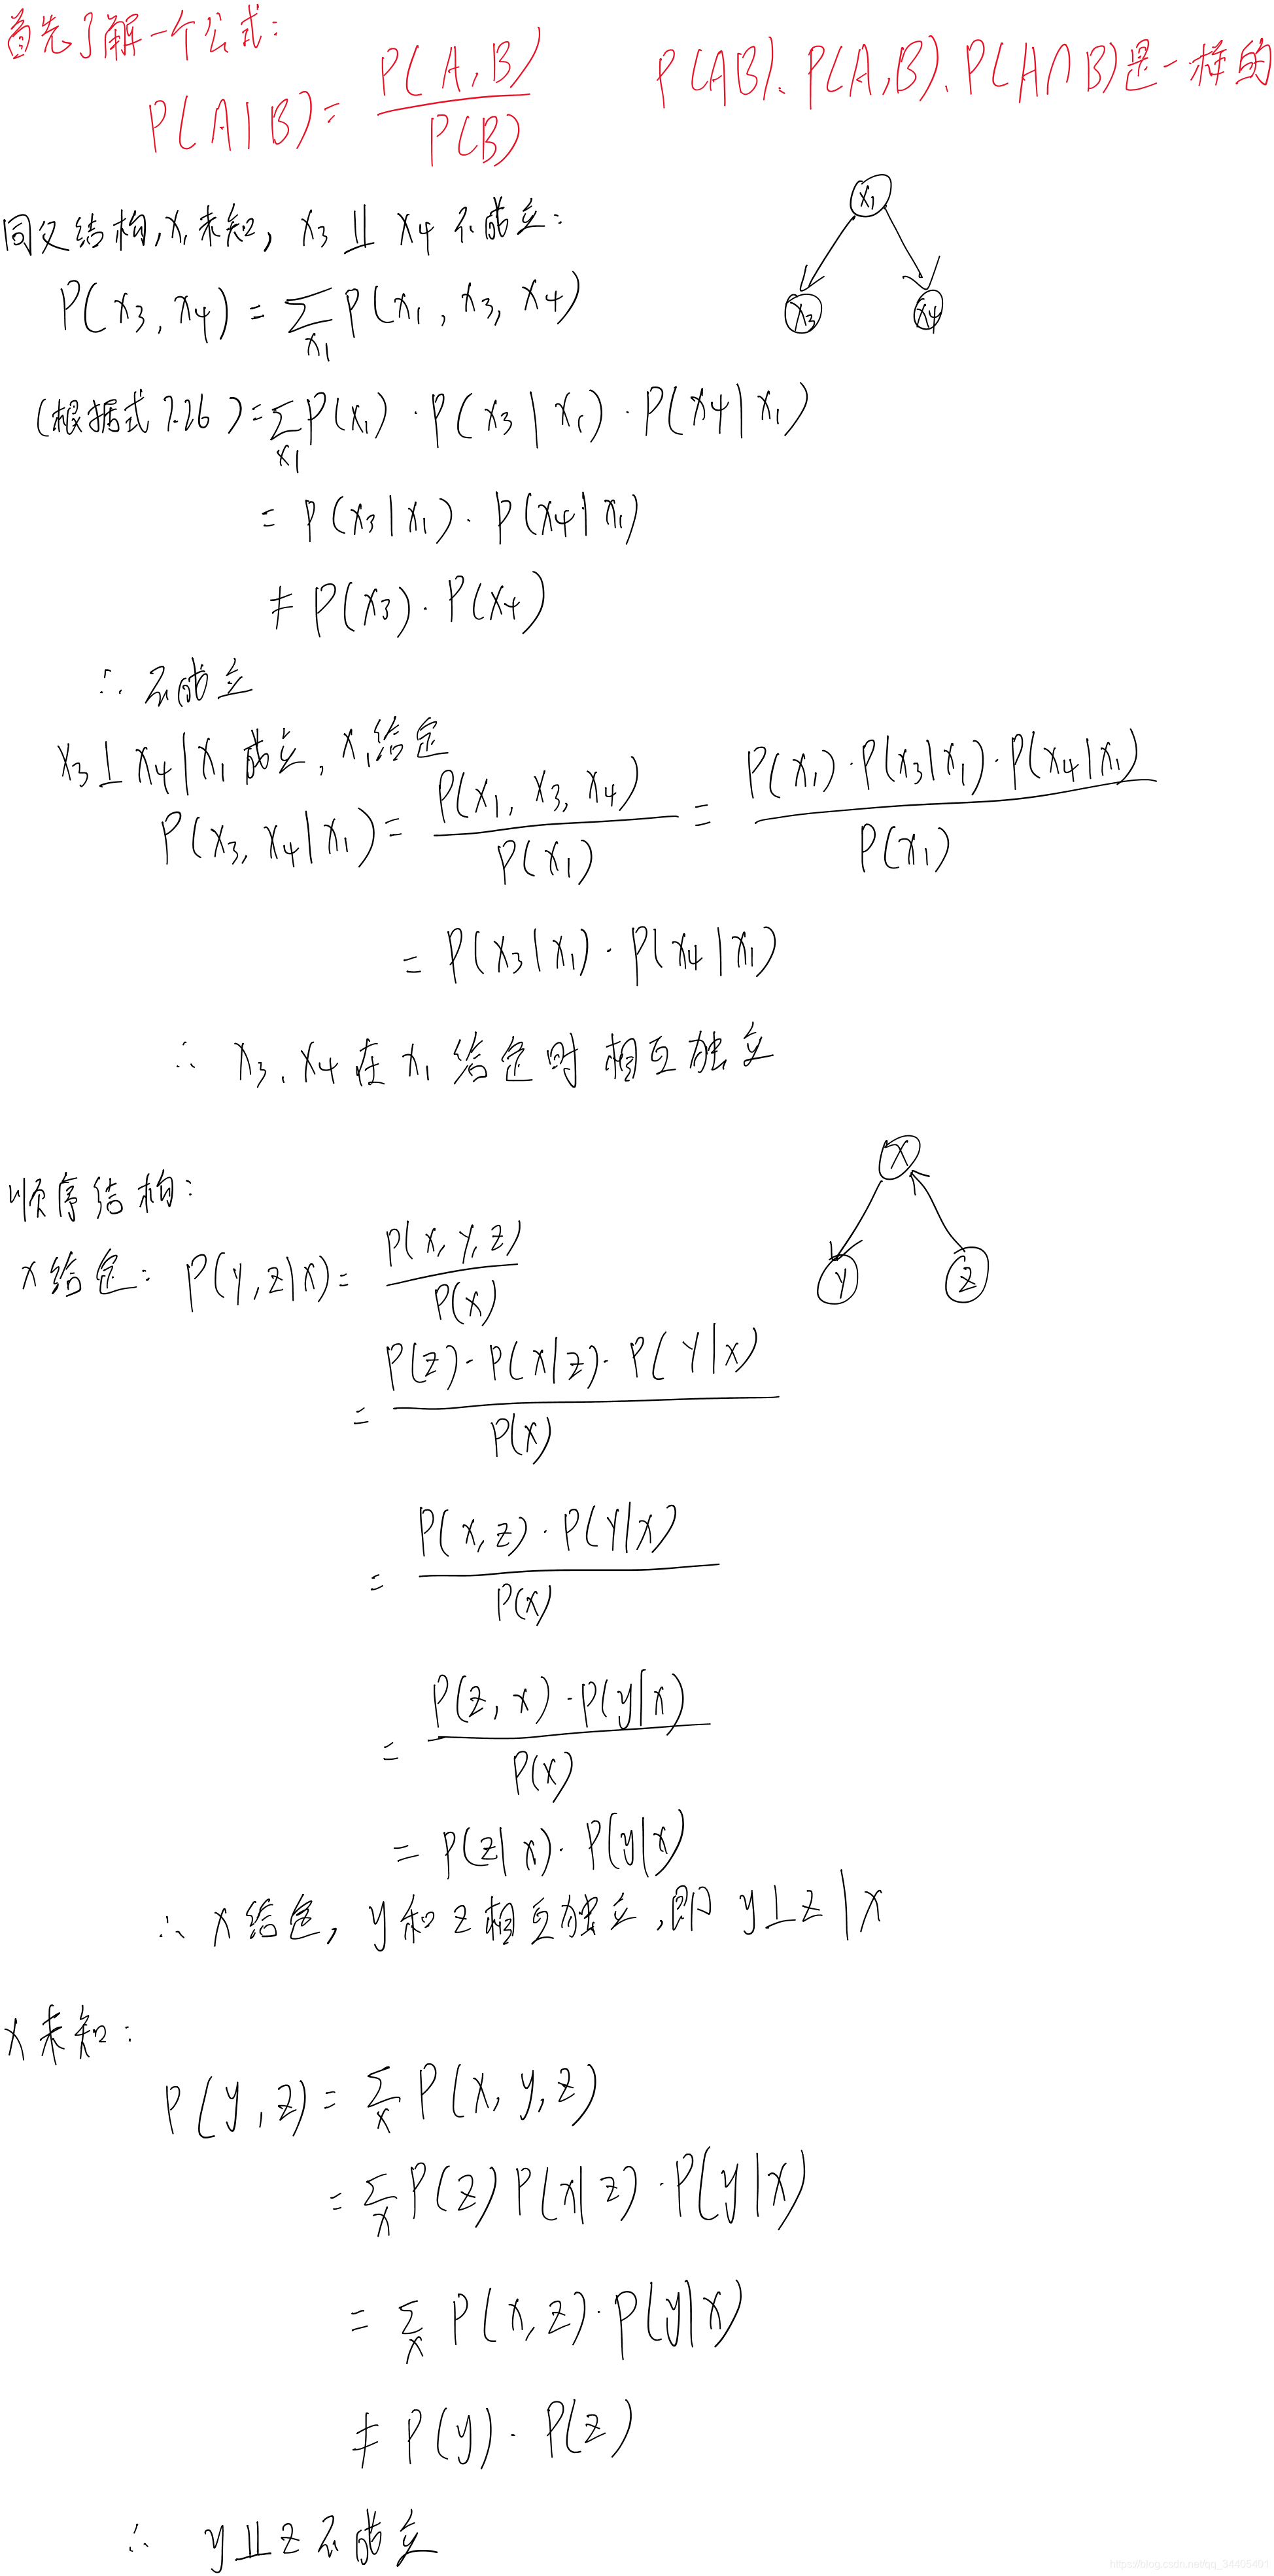 首先了解一个公式:
P(A|B) = P(A,B) / P(B)   P(AB)、P(A,B)、P(A∩B)是一样的
x₁
x₃ x₄
同父结构,x₁未知, x₃ ⫫ x₄ 不成立:
P(x₃,x₄) = ∑x₁ P(x₁,x₃,x₄)
(根据式7.26) = ∑x₁ P(x₁)·P(x₃|x₁)·P(x₄|x₁)
= P(x₃|x₁)·P(x₄|x₁)
≠ P(x₃)·P(x₄)
∴ 不成立
x₃⊥x₄|x₁成立, x₁给定
P(x₃,x₄|x₁) = P(x₁,x₃,x₄) / P(x₁) = P(x₁)·P(x₃|x₁)·P(x₄|x₁) / P(x₁)
= P(x₃|x₁)·P(x₄|x₁)
∴ x₃、x₄在x₁给定时相互独立
x
y z
顺序结构:
x给定: P(y,z|x) = P(x,y,z) / P(x)
= P(z)·P(x|z)·P(y|x) / P(x)
= P(x,z)·P(y|x) / P(x)
= P(z,x)·P(y|x) / P(x)
= P(z|x)·P(y|x)
∴ x给定, y和z相互独立,即 y⊥z|x
x未知:
P(y,z) = ∑x P(x,y,z)
= ∑x P(z)P(x|z)·P(y|x)
= ∑x P(x,z)·P(y|x)
≠ P(y)·P(z)
∴ y⫫z不成立
https://blog.csdn.net/qq_34405401